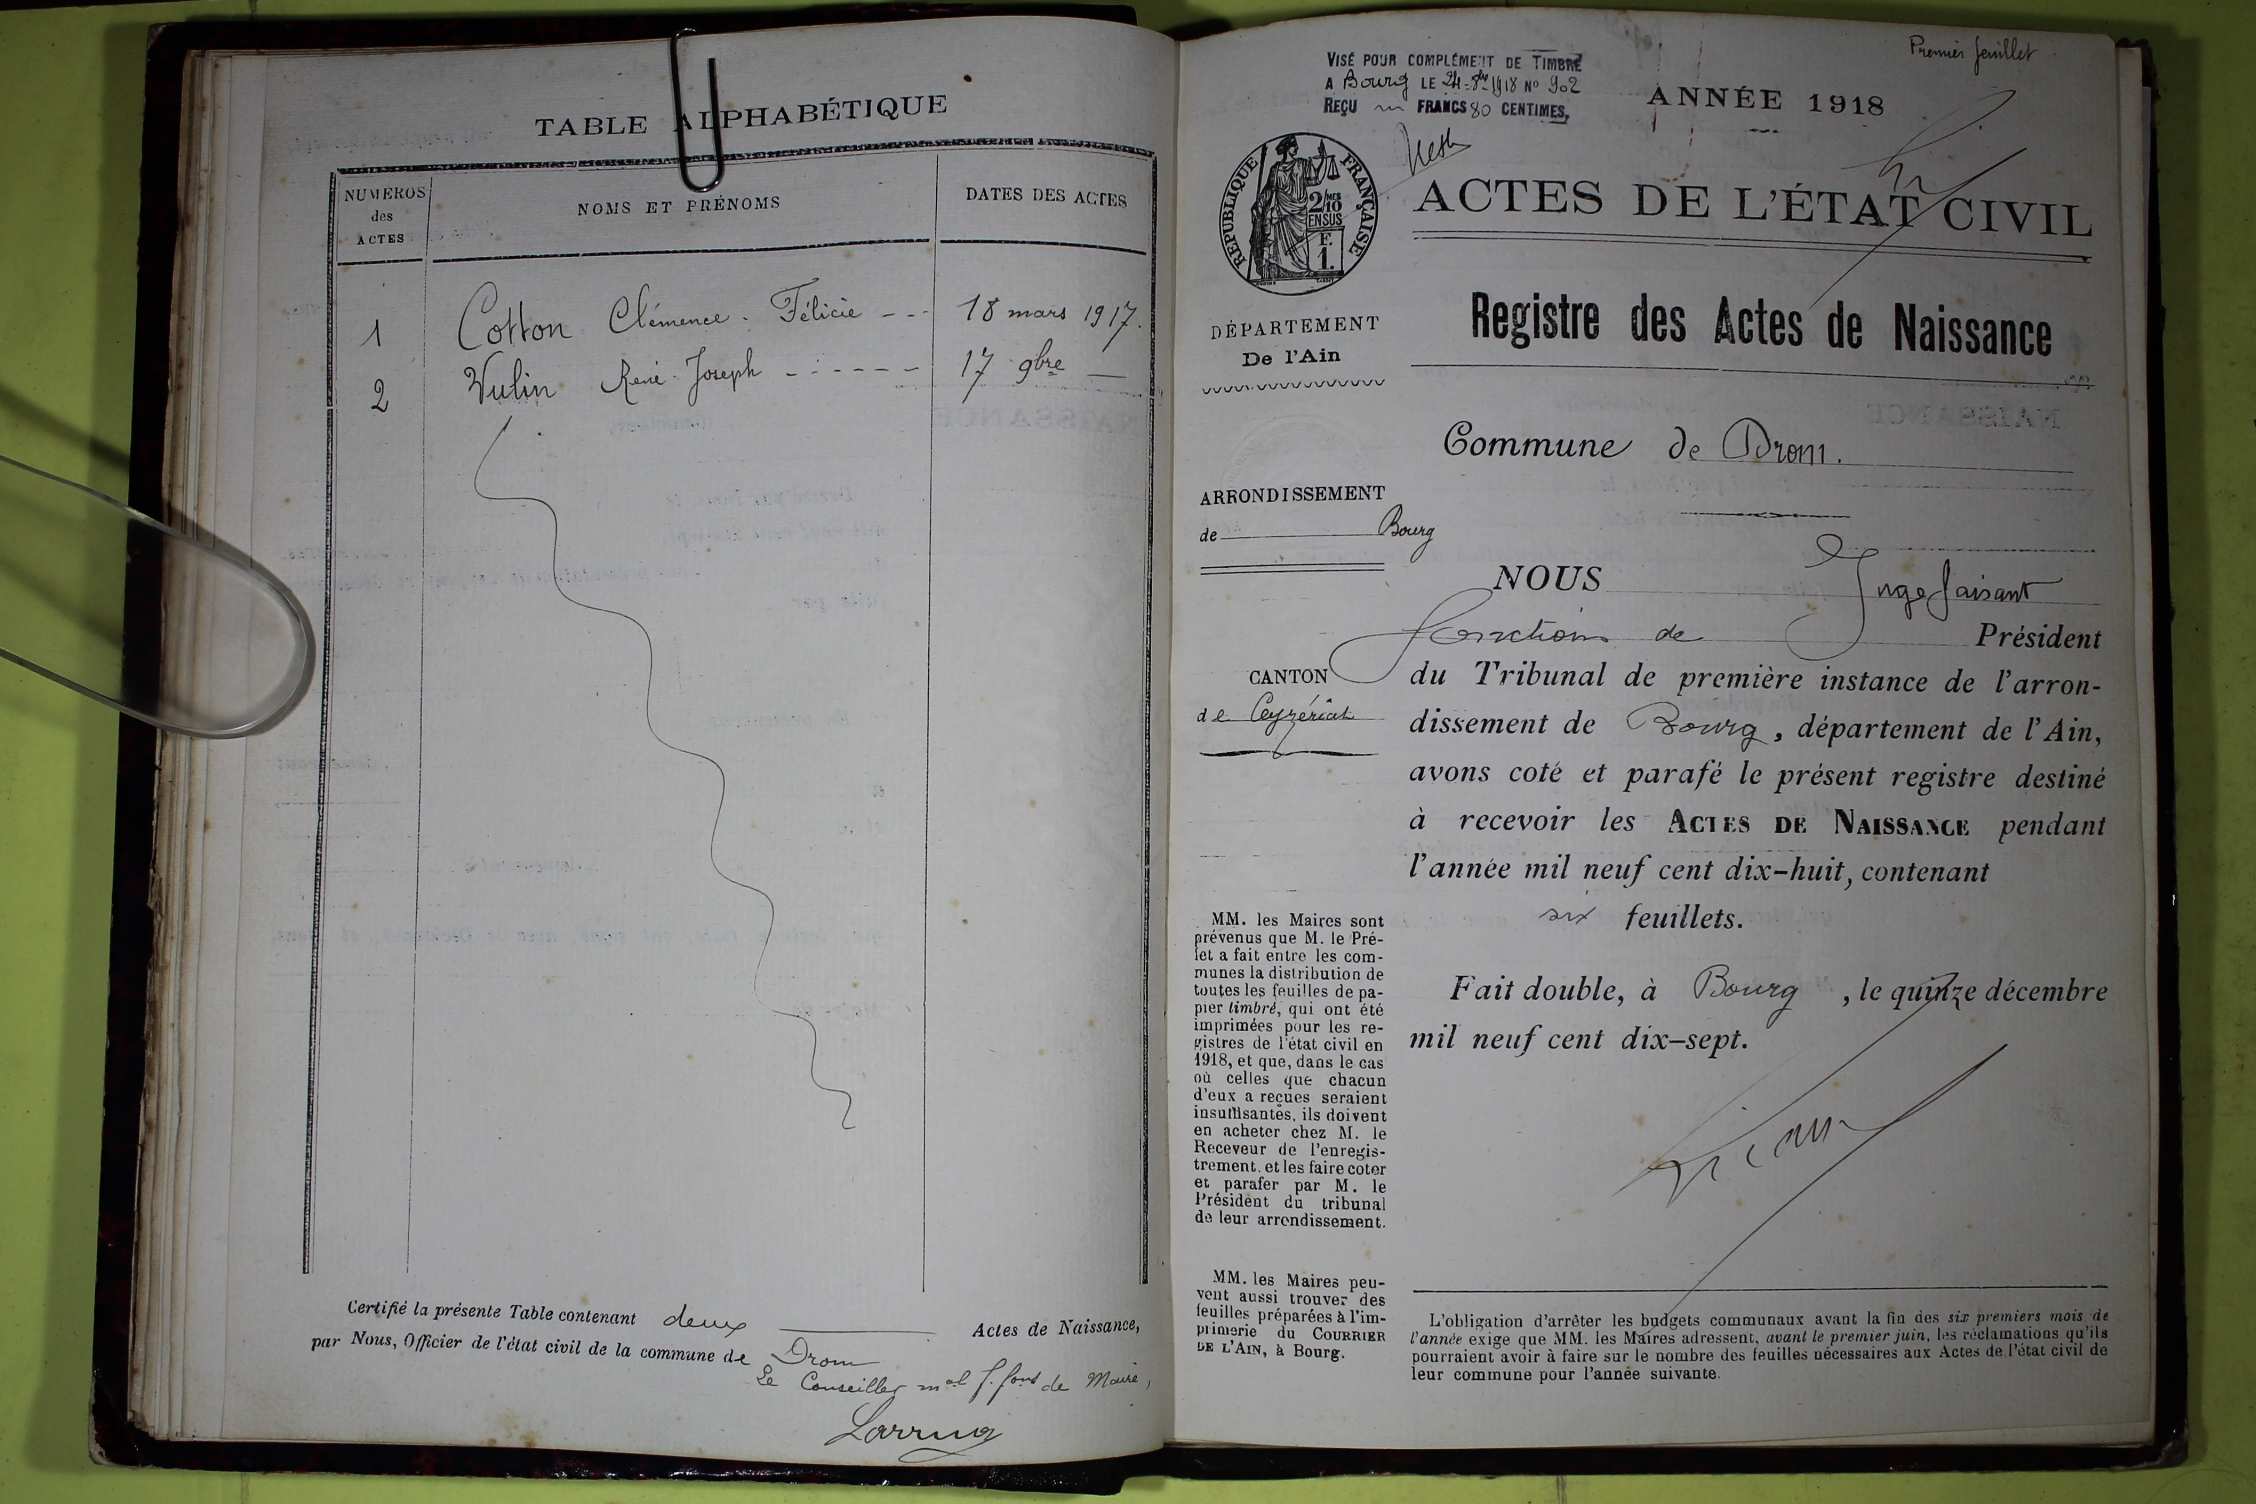 TABLE ALPHABÉTIQUE
NUMÉROS
des
ACTES
NOMS ET PRÉNOMS
DATES DES ACTES
1 Cotton Clémence - Félicie - - - 18 mars 1917.
2 Vulin René Joseph - - - - - - 17 9bre —
Certifié la présente Table contenant deux Actes de Naissance,
par Nous, Officier de l'état civil de la commune de Drom
Le Conseiller mal f. fons de Maire,
Premier feuillet
VISÉ POUR COMPLÉMENT DE TIMBRE
A Bourg LE 24-8bre 1918 N° 902
REÇU FRANCS 80 CENTIMES,
ANNÉE 1918
RÉPUBLIQUE FRANÇAISE
2/10
EN SUS
F.
1.
ACTES DE L'ÉTAT CIVIL
DÉPARTEMENT
De l'Ain
Registre des Actes de Naissance
Commune de Drom.
ARRONDISSEMENT
de Bourg
CANTON
de Ceyzériat
NOUS Juge faisant
fonctions de Président
du Tribunal de première instance de l'arron-
dissement de Bourg, département de l'Ain,
avons coté et parafé le présent registre destiné
à recevoir les ACTES DE NAISSANCE pendant
l'année mil neuf cent dix-huit, contenant
six feuillets.
Fait double, à Bourg, le quinze décembre
mil neuf cent dix-sept.
MM. les Maires sont
prévenus que M. le Pré-
fet a fait entre les com-
munes la distribution de
toutes les feuilles de pa-
pier timbré, qui ont été
imprimées pour les re-
gistres de l'état civil en
1918, et que, dans le cas
où celles que chacun
d'eux a reçues seraient
insuffisantes, ils doivent
en acheter chez M. le
Receveur de l'enregis-
trement, et les faire coter
et parafer par M. le
Président du tribunal
de leur arrondissement.
MM. les Maires peu-
vent aussi trouver des
feuilles préparées à l'im-
primerie du COURRIER
DE L'AIN, à Bourg.
L'obligation d'arrêter les budgets communaux avant la fin des six premiers mois de
l'année exige que MM. les Maires adressent, avant le premier juin, les réclamations qu'ils
pourraient avoir à faire sur le nombre des feuilles nécessaires aux Actes de l'état civil de
leur commune pour l'année suivante.